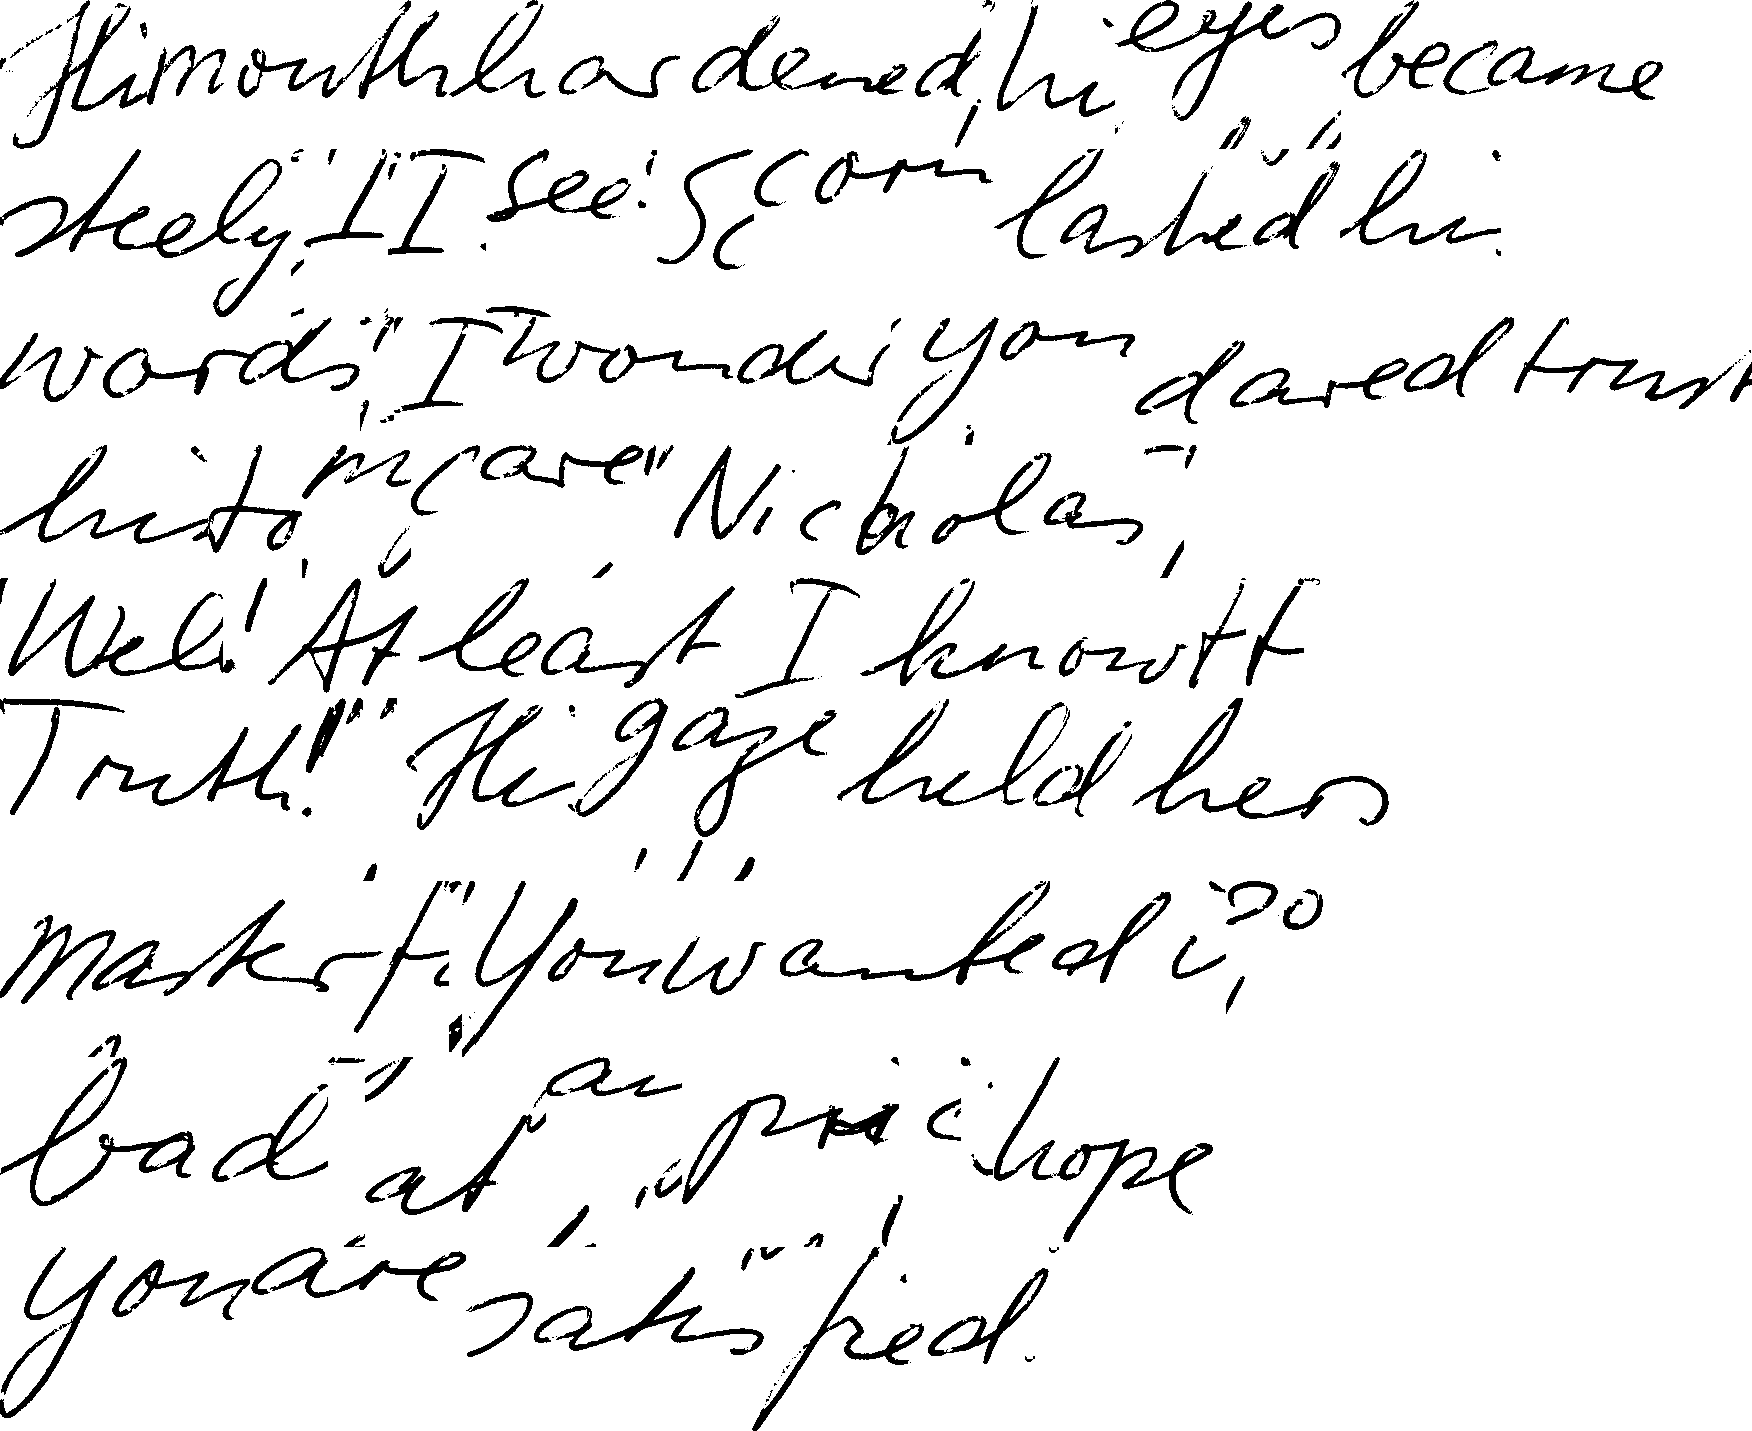 His mouth hardened, his eyes became
steely, "I see! Scorn lashed his
words, "I wonder you dared trust
his to my care" Nicholas,
'Well! At least I know tt
Truth!" His gaze held hers
"You wanted
bad at any price hope
you are satisfied.